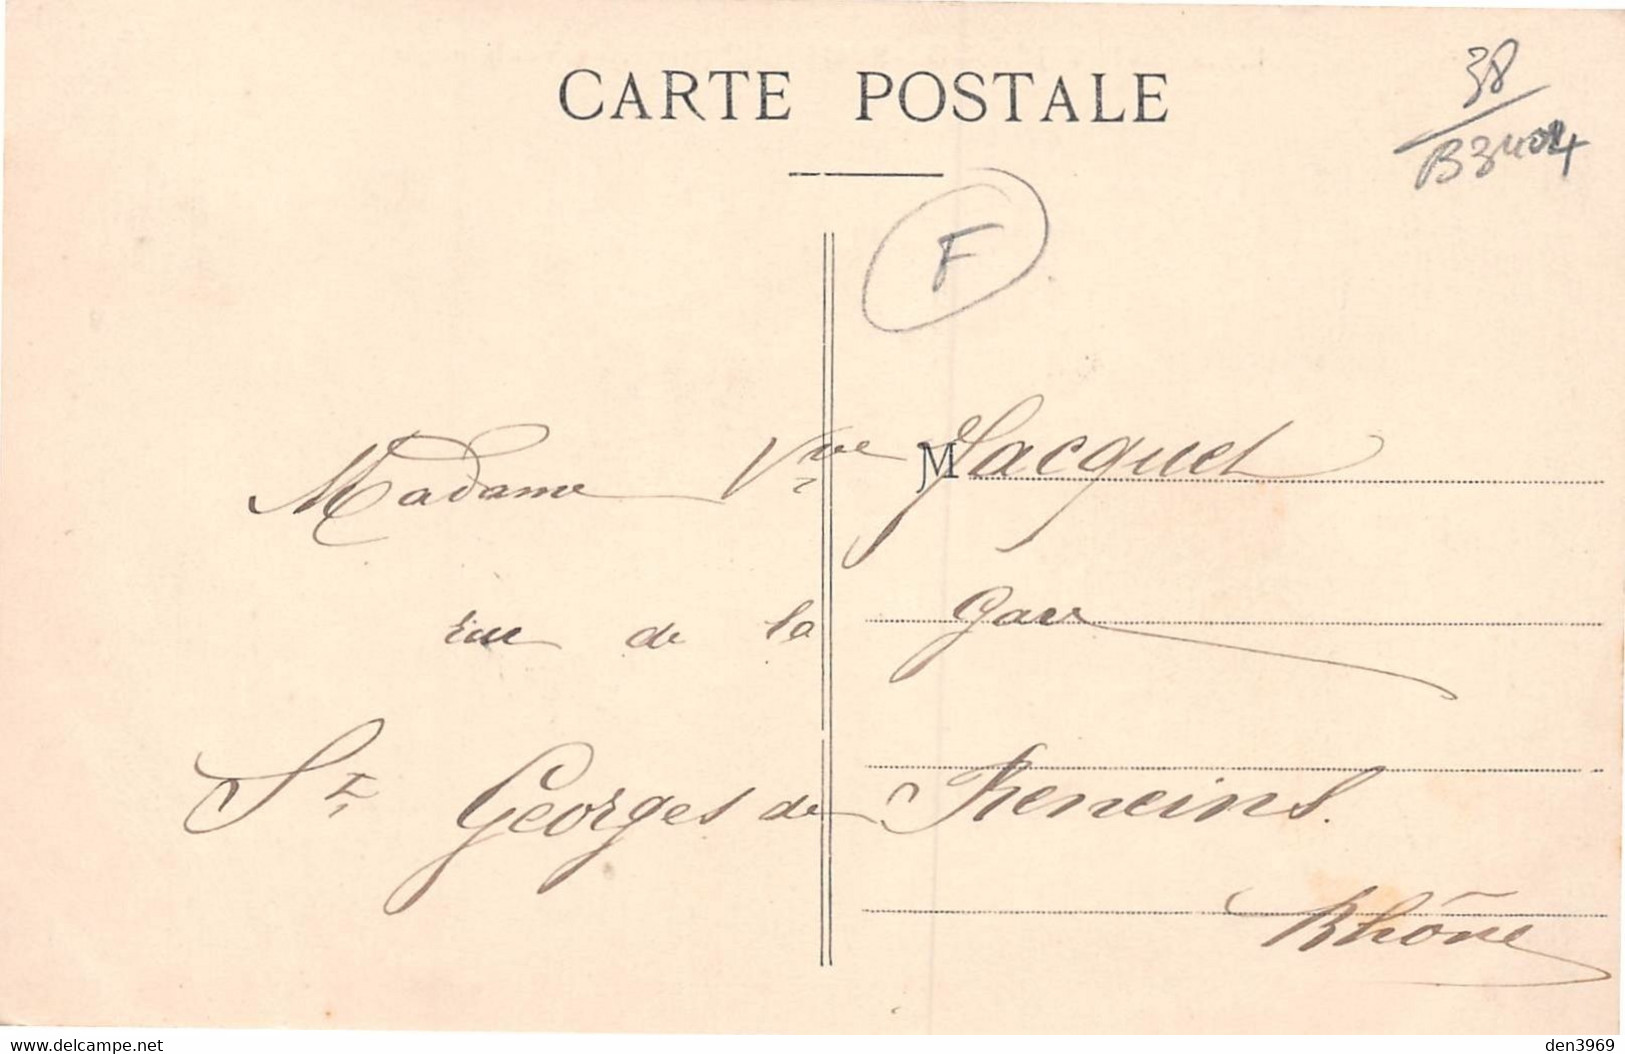 CARTE POSTALE
38
B3404
F
M
Madame Vve Jacquet
rue de la Gare
St Georges de Reneins.
Rhône
www.delcampe.net
den3969